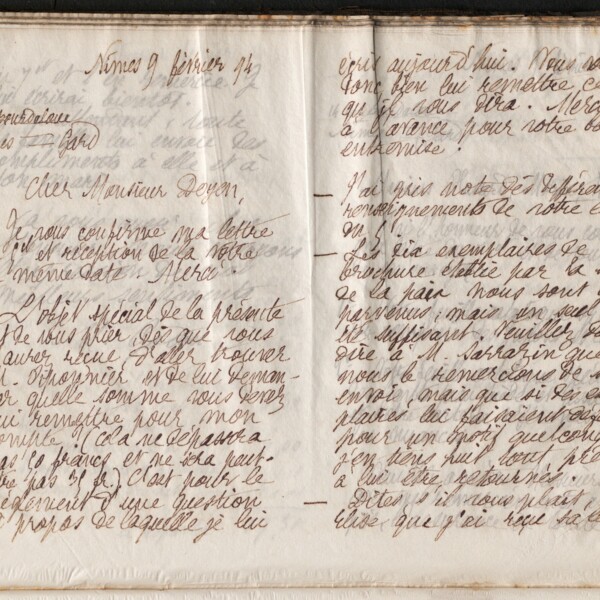 Nîmes 9 février 94
Bourdaloue
Gard
Cher Monsieur Doyen,
Je vous confirme ma lettre
et réception de la vôtre
même date. Merci.
L'objet spécial de la présente
est de vous prier, dès que vous
aurez reçue d'aller trouver
et de lui deman-
der quelle somme vous devez
lui remettre pour mon
compte. (Cela ne dépassera
pas 50 francs et ne sera peut-
être pas 5 fr.) C'est pour le
règlement d'une question
à propos de laquelle je lui
écris aujourd'hui. Vous
donc bien lui remettre ce
qu'il vous dira. Merci
à l'avance pour votre bonne
entremise.
— J'ai pris note des
renseignements de votre
— Les dix exemplaires de
brochure éditée par la
de la paix nous sont
parvenus; mais un seul
suffisant. Veuillez
dire à M. Sarrazin que
nous le remercions de
envoi, mais que si des
plaires lui faisaient
pour un motif quelconque
j'en tiens huit tout prêts
à lui être retournés.
— Dites s'il vous plaît
Elise que j'ai reçu sa